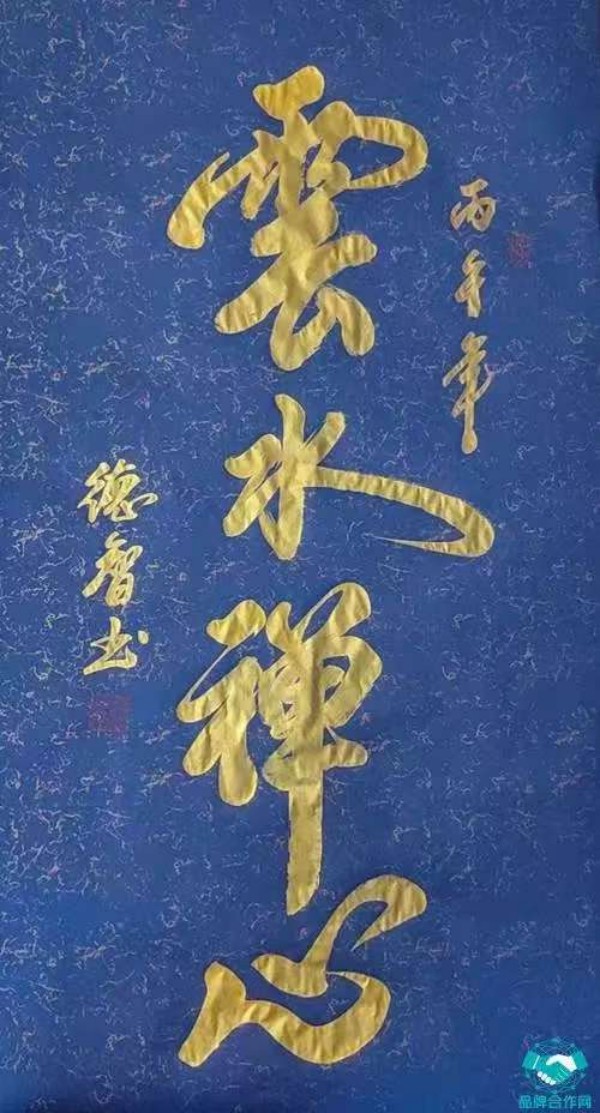 丙午年
雲水禅心
德智书
品牌合作网